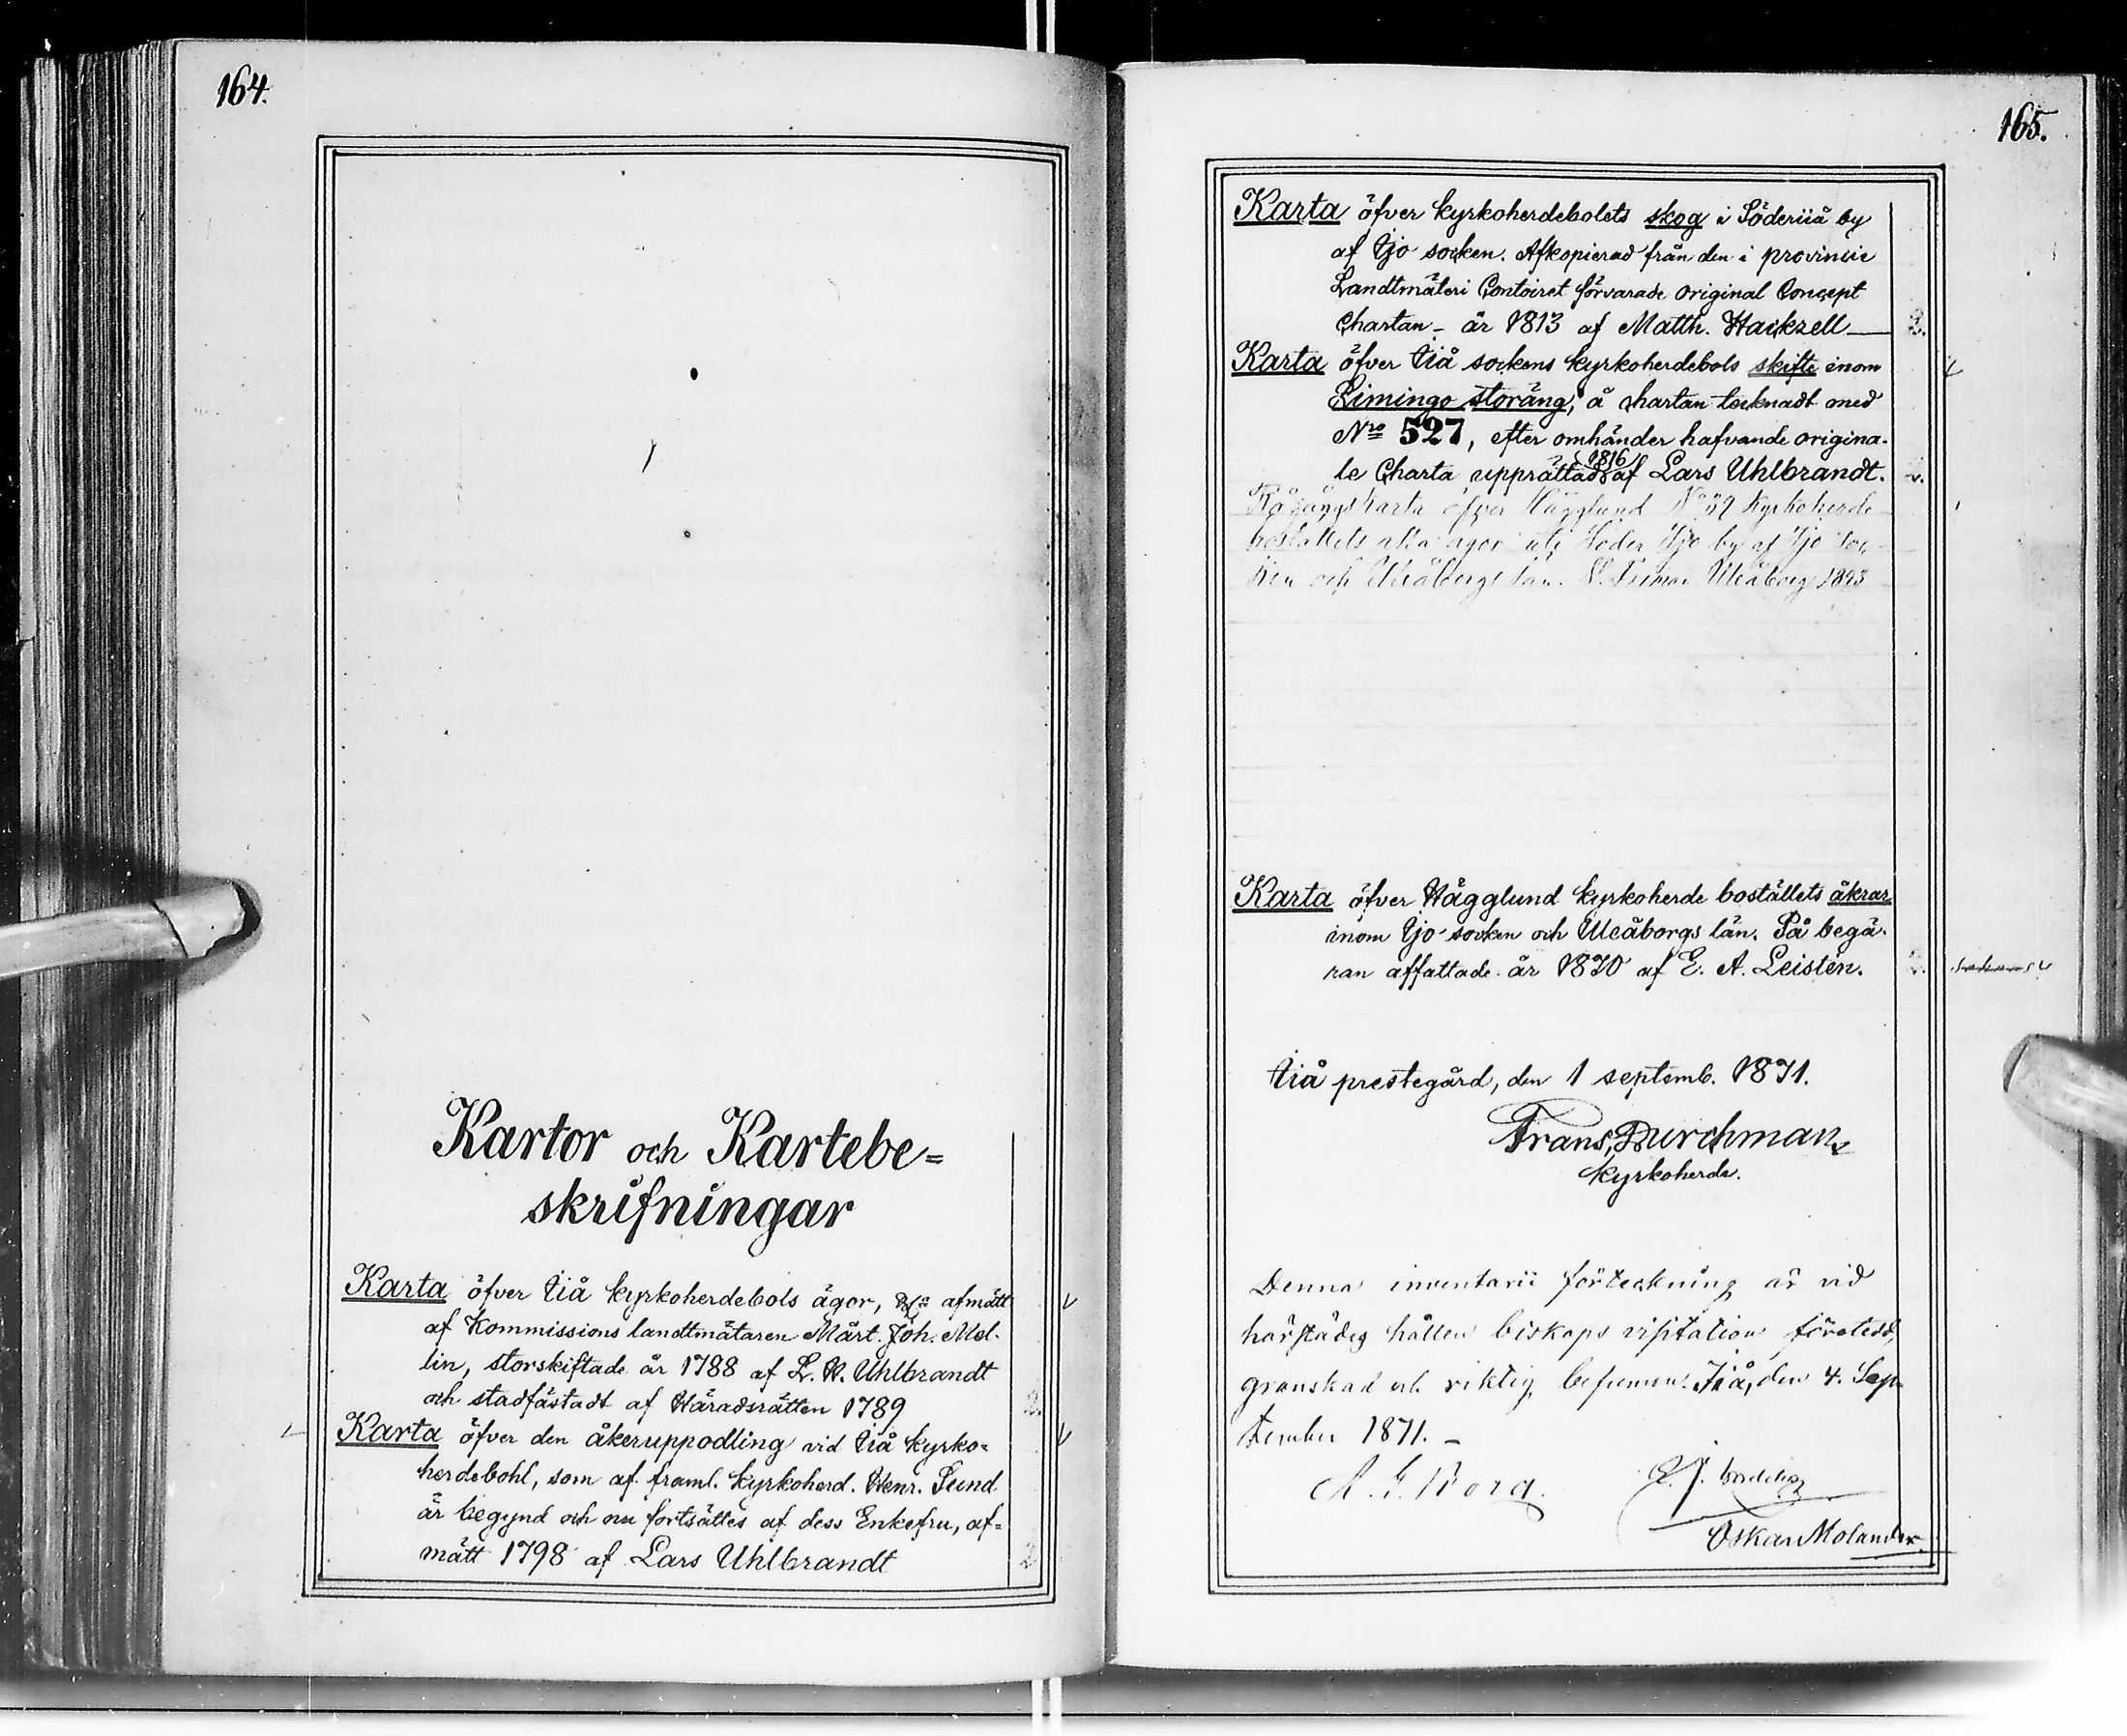 164.
Kartor och Kartebe=
skrifningar
Karta öfver Iiå kyrkoherdebols ägor, afmätt
af Kommissions landtmätaren Mårt. Joh. Mel-
lin, storskiftade år 1788 af L. H. Uhlbrandt
och stadfästadt af Häradsrätten 1789
Karta öfver den åkeruppodling vid Iiå kyrko=
herdebohl, som af framl. kyrkoherd. Henr. Sund
är begynd och nu fortsättes af dess Enkefru, af=
mätt 1798 af Lars Uhlbrandt
2.
165.
Karta öfver kyrkoherdebolets skog i Söderiiå by
af Ijo socken. Afkopierad från den i provincie
Landtmäteri Contoiret förvarade original Concept
Chartan – år 1813 af Matth. Hackzell — 2.
Karta öfver Iiå sockens kyrkoherdebols skifte inom
Limingo storäng, å chartan tecknadt med
Nro 527, efter omhänder hafvande origina-
le Charta upprättad 1816 af Lars Uhlbrandt.
Rågångskarta öfver Hägglund No 39 Kyrkoherde
boställets alla ägor uti Söder Ijo by af Ijo soc
ken och Uleåborgs län. Uleåborg 1893
Karta öfver Hägglund kyrkoherde boställets åkrar
inom Ijo socken och Uleåborgs län. På begä-
ran affattade år 1870 af E. A. Leistén.
Iiå prestegård, den 1 septemb. 1871.
Frans Durchman
kyrkoherde.
Denna inventarii förteckning är vid
härstädes hållen biskops visitation företedd,
granskad och riktig befunnen. Iiå, den 4. Sep-
tember 1871. –
A. G. Borg.
Oskar Molander.